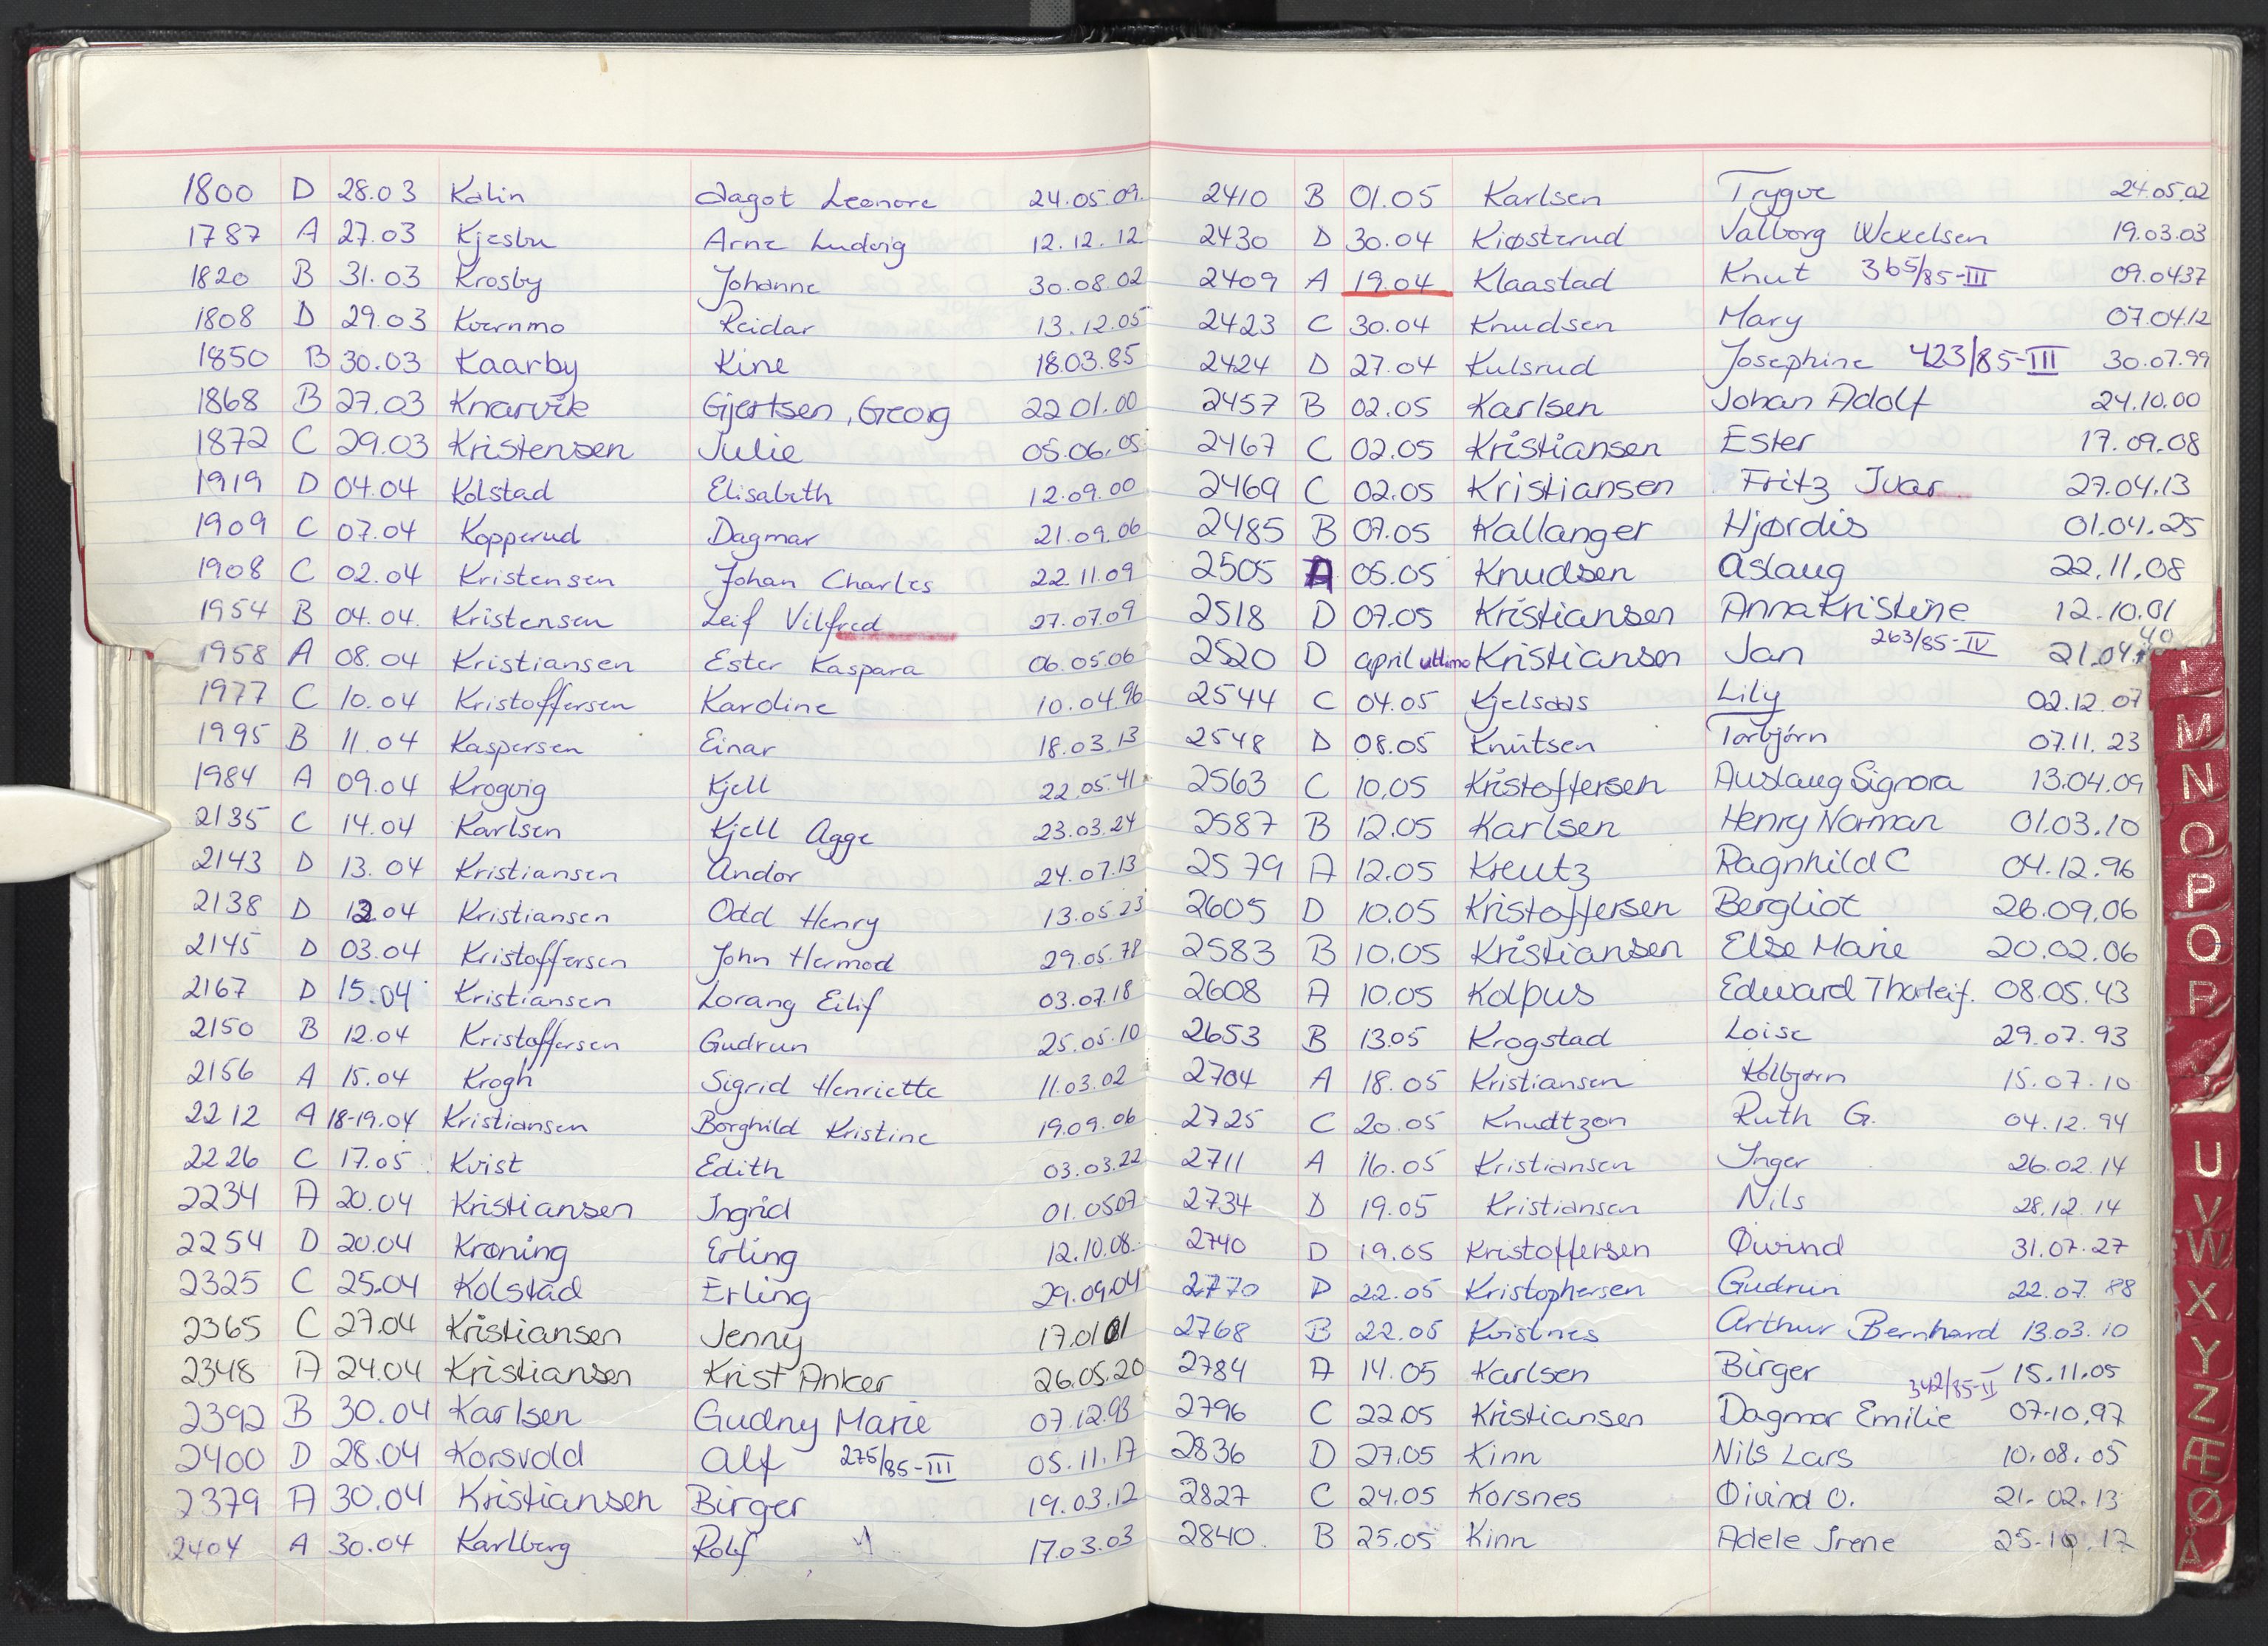 1800 D 28.03 Kalin Dagot Leonore 24.05.09
1787 A 27.03 Kjesbu Arne Ludvig 12.12.12
1820 B 31.03 Krosby Johanne 30.08.02
1808 D 29.03 Kvernmo Reidar 13.12.05
1850 B 30.03 Kaarby Kine 18.03.85
1868 B 27.03 Knarvik Gjertsen, Georg 22 01.00
1872 C 29.03 Kristensen Julie 05.06.05
1919 D 04.04 Kolstad Elisabeth 12.09.00
1909 C 07.04 Kopperud Dagmar 21.09.06
1908 C 02.04 Kristensen Johan Charles 22 11.09
1954 B 04.04. Kristensen Leif Vilfred 27.07.09
1958 A 08.04 Kristiansen Ester Kaspara 06.05.06
1977 C 10.04 Kristoffersen Karoline 10.04.96
1995 B 11.04 Kaspersen Einar 18.03.13
1984 A 09.04 Krogvig Kjell 22.05.41
2135 C 14.04 Karlsen Kjell Agge 23.03.24
2143 D 13.04 Kristiansen Andor 24.07.13
2138 D 12.04 Kristiansen Odd Henry 13.05.23
2145 D 03.04 Kristoffersen John Hermod 29.05.78
2167 D 15.04 Kristiansen Lorang Eilif 03.07.18
2150 B 12.04 Kristoffersen Gudrun 25.05.10
2156 A 15.04 Krogh Sigrid Henriette 11.03.02
2212 A 18-19.04 Kristiansen Borghild Kristine 19.09.06
2226 C 17.05 Kvist Edith 03.03.22
2234 A 20.04 Kristiansen Ingrid 01.05.07
2254 D 20.04 Krøning Erling 12.10.08
2325 C 25.04 Kolstad Erling 29.09.04
2365 C 27.04 Kristiansen Jenny 17.01 01
2348 A 24.04 Kristiansen Krist Anker 26.05.20
2392 B 30.04 Karlsen Gudny Marie 07.12.93
2400 D 28.04 Korsvold Alf 275/85-III 05.11.17
2379 A 30.04 Kristiansen Birger 19.03.12
2404 A 30.04 Karlberg Rolf 17.03.03
2410 B 01.05 Karlsen Trygve 24.05.02
2430 D 30.04 Kiøsterud Valborg Wexelsen 19.03.03
2409 A 19.04 Klaastad Knut 365/85-III 09.0437
2423 C 30.04 Knudsen Mary 07.04.12
2424 D 27.04 Kulsrud Josephine 423/85-III 30.07.99
2457 B 02.05 Karlsen Johan Adolf 24.10.00
2467 C 02.05 Kristiansen Ester 17.09.08
2469 C 02.05 Kristiansen Fritz Ivar 27.04.13
2485 B 07.05 Kallanger Hjørdis 01.04.25
2505 A 05.05 Knudsen Aslaug 22.11.08
2518 D 07.05 Kristiansen Anna Kristine 12.10.01
2520 D april ultimo Kristiansen Jan 263/85-IV 21.04.40
2544 C 04.05 Kjelsaas Lily 02.12.07
2548 D 08.05 Knutsen Torbjørn 07.11.23
2563 C 10.05 Kristoffersen Auslaug Signora 13.04.09
2587 B 12.05 Karlsen Henry Norman 01.03.10
2579 A 12.05 Kreutz Ragnhild C 04.12.96
2605 D 10.05 Kristoffersen Bergliot 26.09.06
2583 B 10.05 Kristiansen Else Marie 20.02.06
2608 A 10.05 Kolpus Edward Thorleif. 08.05.43
2653 B 13.05 Krogstad Loise 29.07.93
2704 A 18.05 Kristiansen Kolbjørn 15.07.10
2725 C 20.05 Knudtzon Ruth G. 04.12.94
2711 A 16.05 Kristiansen Inger 26.02.14
2734 D 19.05 Kristiansen Nils 28.12.14
2740 D 19.05 Kristoffersen Øivind 31.07.27
2770 D 22.05 Kristophersen Gudrun 22.07.88
2768 B 22.05 Kvistnes Arthur Bernhard 13.03.10
2784 A 14.05 Karlsen Birger 15.11.05
2796 C 22.05 Kristiansen Dagmar Emilie 342/85-II 07.10.97
2836 D 27.05 Kinn Nils Lars 10.08.05
2827 C 24.05 Korsnes Øivind O. 21.02.13
2840. B 25.05 Kinn Adele Irene 25.10.17
L
M
N
O
P
Q
R
U
V
W
X
Y
Z
Æ
Ø
Å